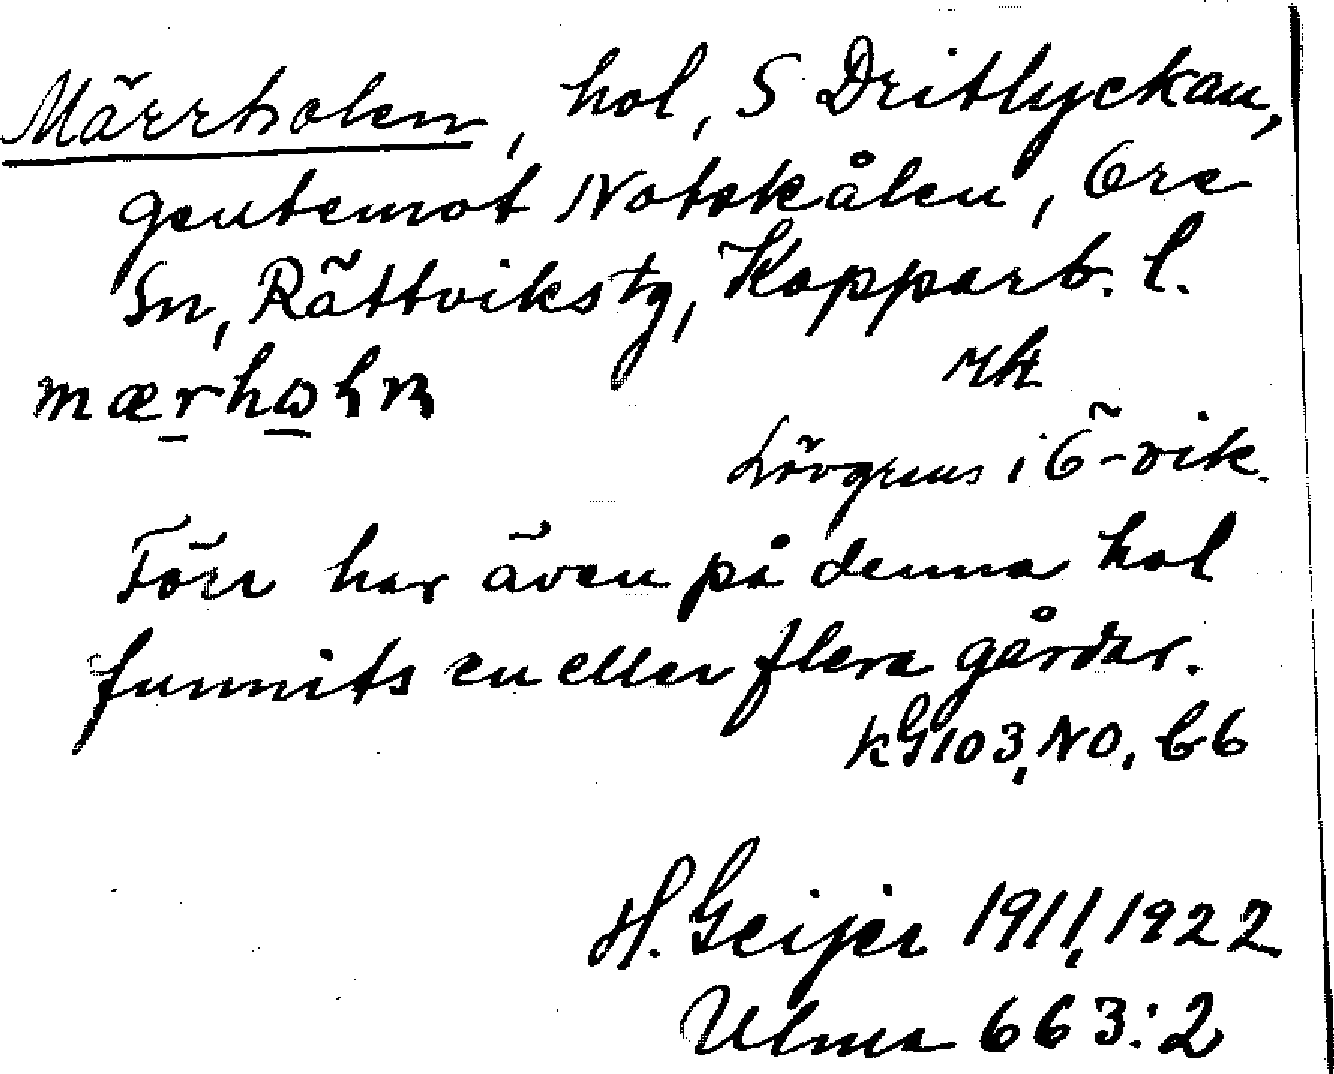 Märrholen, hol, S Dritlyckan,
gentemot Notskålen, Ore
Sn, Rättviks tg, Kopparb. l.
mærhωln
Lövgrens i Ö-vik.
Förr har även på denna hol
funnits en eller flera gårdar.
KG 103, NO, b6
H. Geijer 1911, 1922
Ulma 663:2